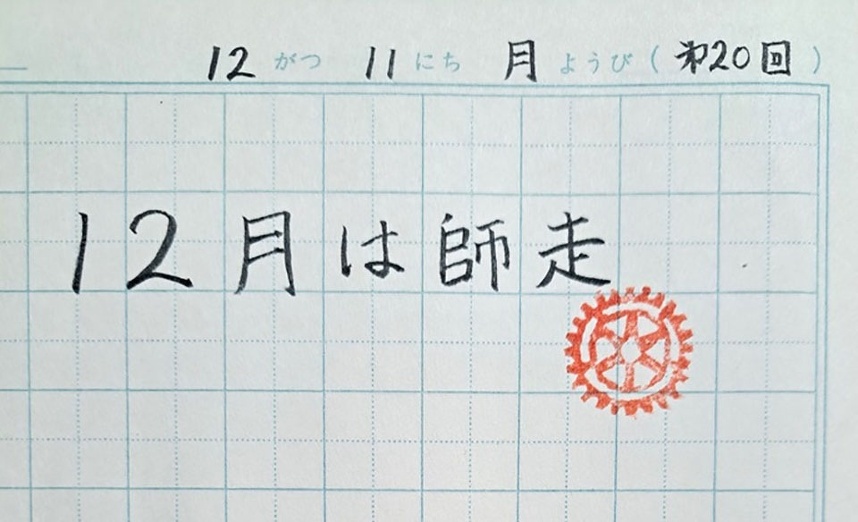 12がつ 11にち 月ようび（第20回）
12月は師走